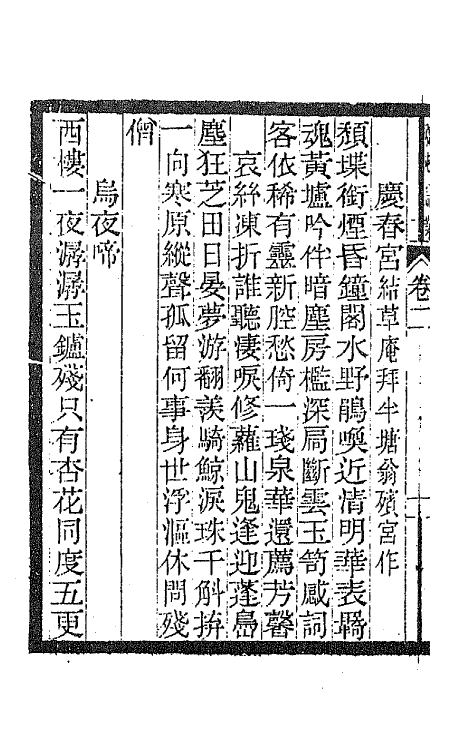 卷二
慶春宮結草庵拜半塘翁殯宮作
頹堞銜煙昏鐘閣水野鵑喚近清明華表羈
魂黃壚吟伴暗塵房櫳深扃斷雲玉笥感詞
客依稀有靈新腔愁倚一琖泉華還薦芳馨
哀絲凍折誰聽悽唳修蘿山鬼逢迎蓬島
塵狂芝田日晏夢游翻羨騎鯨淚珠千斛拚
一向寒原縱聲孤留何事身世浮漚休問殘
僧
烏夜啼
西樓一夜潺潺玉鑪殘只有杏花同度五更